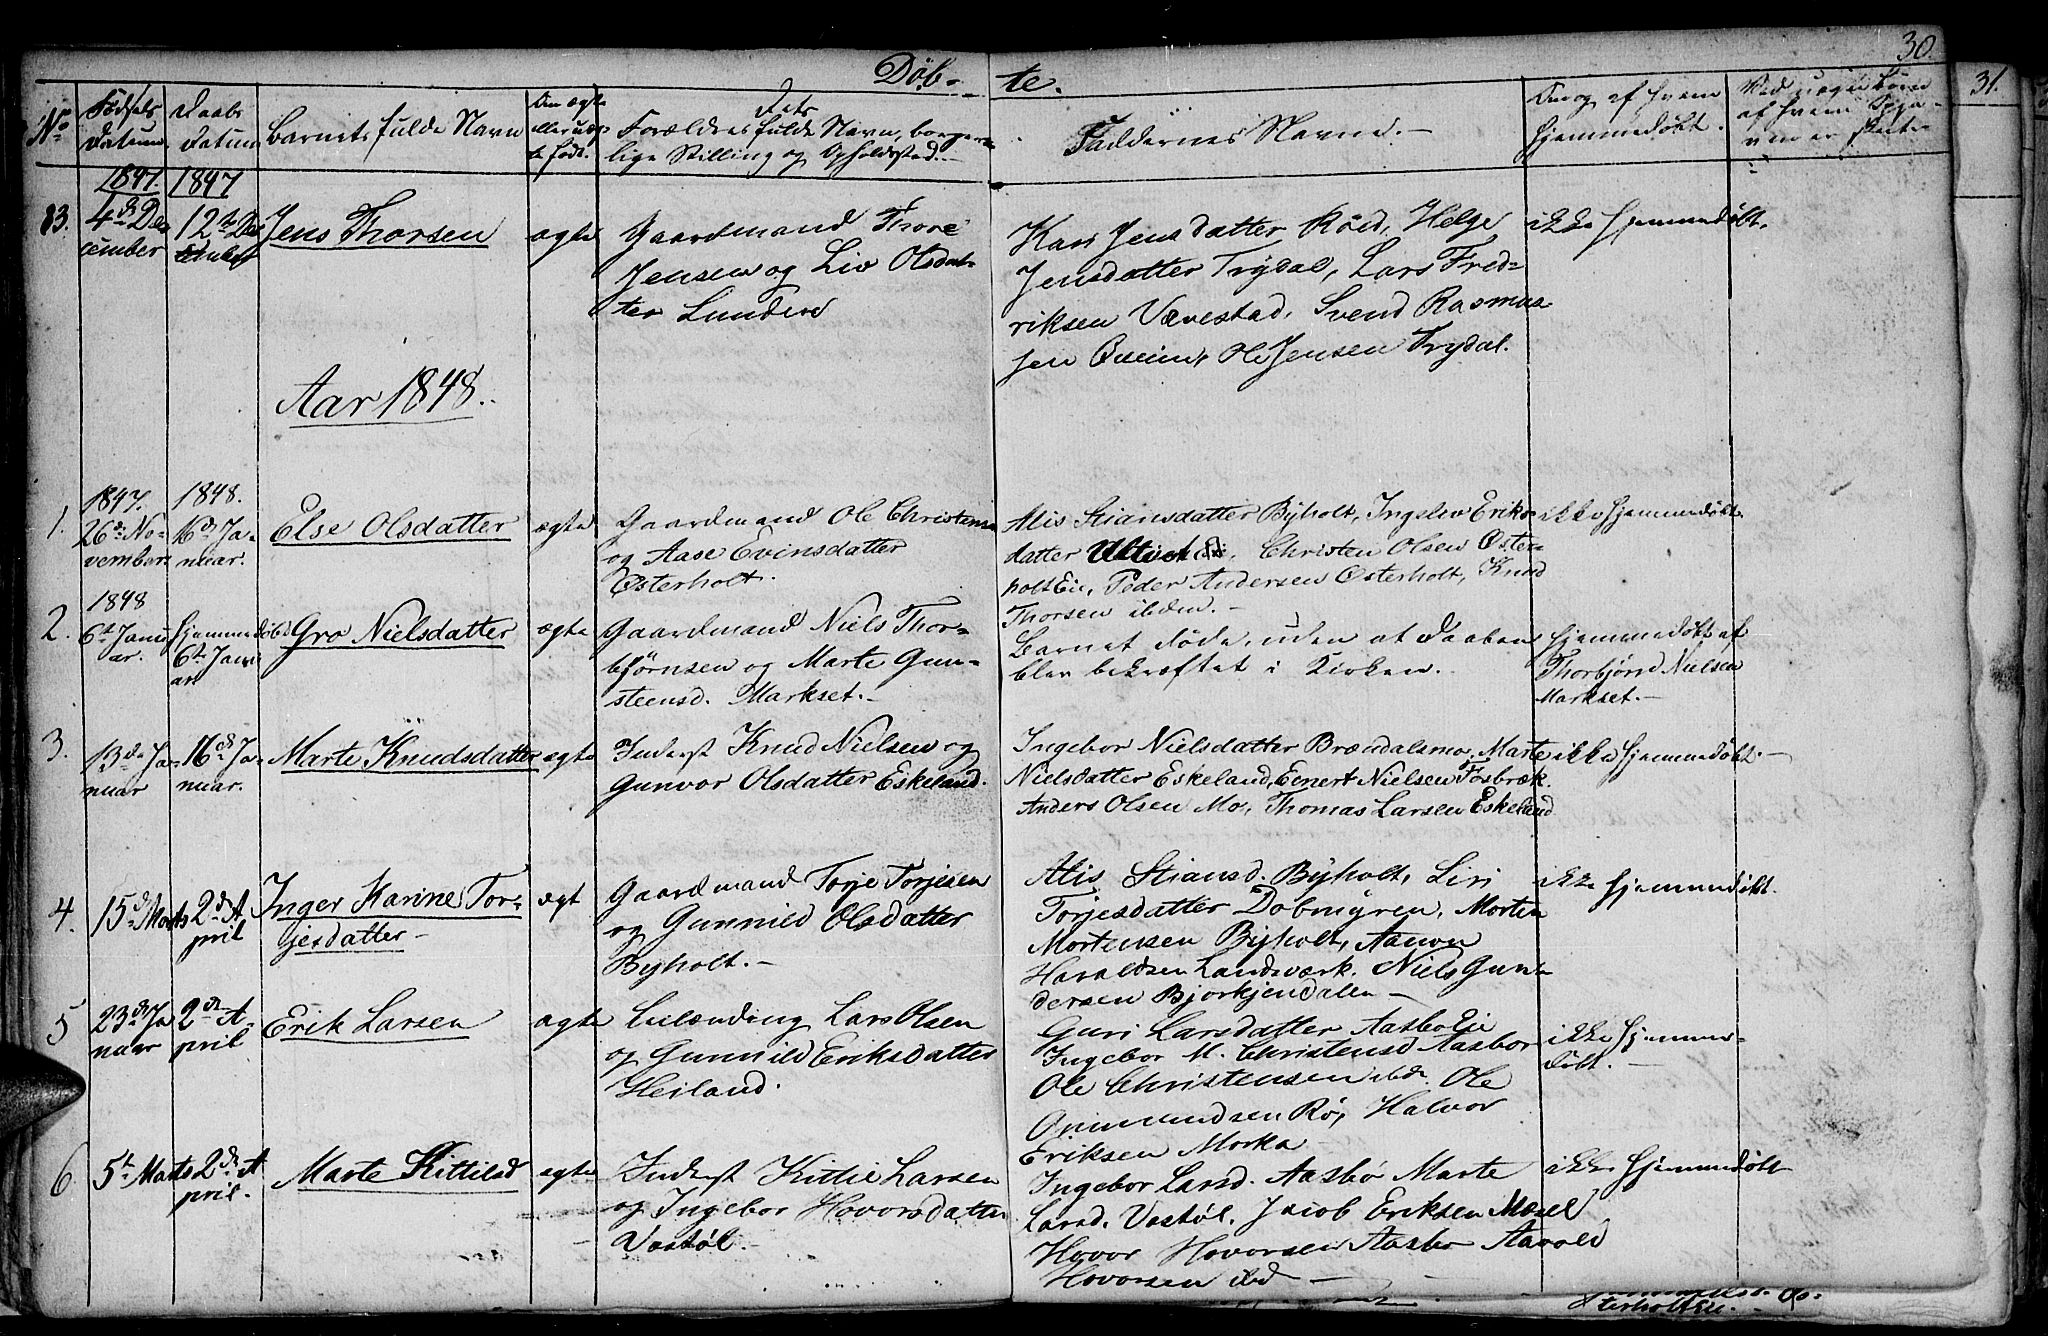 Døb-
te.
30.
31.
No
Fødsels
Datum
Daabs
Datum
Barnets fulde Navn
Om ægte
eller uæg-
te født.
Forældres fulde Navn, borger-
lige Stilling og Opholdssted.
Faddernes Navne.
Om og af hvem
hjemmedøbt.
1847.
1847
83.
4de De-
cember
12te De-
cember
Jens Thorsen
ægte
Gaardmand Thore
Jensen og Liv Olsdat-
ter Lunden
Kari Jensdatter Røed, Helge
Jensdatter Trydal, Lars Fred-
riksen Vævestad, Svend Rasmus-
sen Ole Jensen Trydal.
ikke hjemmedøbt.
Aar 1848.
1.
1847.
26de No-
vember.
1848.
16de Ja-
nuar.
Else Olsdatter
ægte
Gaardmand Ole Christens
og Aase Evinsdatter
Østerholt.
Alis Stiansdatter Byholt, Ingelev Eriks-
datter Christen Olsen Øster-
holt Eie, Peder Andersen Østerholt, Knud
Thorsen ibdm.
ikke hjemmedøbt
2.
1848
6te Janu-
ar.
hjemmedøbt
6te Janu-
ar
Gro Nielsdatter
ægte
Gaardmand Niels Thor-
bjørnsen og Marte Gun-
steensd. Markset.
Barnet døde, uden at Daaben
blev bekræftet i Kirken.
hjemmedøbt af
Thorbjørn Nielsen
Markset.
3.
13de Ja-
nuar
16de Ja-
nuar.
Marte Knudsdatter
ægte
Inderst Knud Nielsen og
Gunvor Olsdatter Eskeland.
Ingebor Nielsdatter Brændalsmo, Marte
Nielsdatter Eskeland, Eenert Nielsen Fosbræk.
Anders Olsen Mo, Thomas Larsen Eskeland
ikke hjemmedøbt.
4.
15de Marts
2de A-
pril
Inger Karine Tor-
jesdatter
ægt
Gaardmand Torje Torjesen
og Gunnild Olsdatter
Byholt.
Alis Stiansd. Byholt, Siri
Torjesdatter Dobmyren, Morten
Mortensen Byholt, Aanon
Haraldsen Landsværk. Niels Gun-
dersen Bjorkjendalen
ikke hjemmedøbt.
5
23de Ja-
nuar
2den A-
pril
Erik Larsen
ægte
Leilænding Lars Olsen
og Gunnild Eriksdatter
Heiland.
Guri Larsdatter Aasbo Eie
Ingebor M. Christensd Aasbo
Ole Christensen ibd. Ole
Anmundsen Rø, Halvor
Eriksen Morka
ikke hjemme-
døbt.
6
5te Marts
2den A-
pril.
Marte Kittilsd
ægte
Inderst Kittil Larsen
og Ingebor Hovorsdatter
Vastøl.
Ingebor Larsd. Aasbø Marte
Larsd. Vastøl, Jacob Eriksen Mæsel
Hovor Hovorsen Aasbo Aavold
Hovorsen ibd
ikke hjemmedøbt